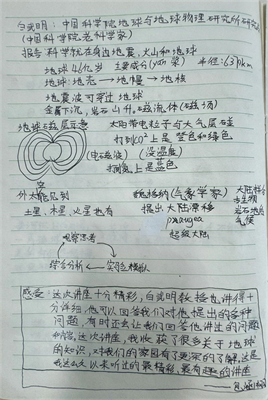 白武明：中国科学院地球与地球物理研究所研究员
(中国科学院老科学家)
报告科学就在身边地震，火山和地球
地球46亿岁 主要成分(yán 岩) 半径：6371km
地球：地壳→地幔→地核
地震波可穿过地球
金属下沉，岩石上升。磁流体(磁场)
地球磁层示意
太阳带电粒子与大气层碰
打到O²上是 红色和绿色
(电磁波) (没温度)
打到氮上是蓝色
外太 能见到
土星、木星、火星也有
魏格纳(气象学家)
提出大陆漂移
pangea
超级大陆
大陆
生物
岩石地层
气候
观察思考
综合分析←实验模拟
感受：这次讲座十分精彩，白武明教授也讲得十
分详细，他可以回答我们对他提出的各种
问题，有时还会让我们回答他讲过的问题
这次讲座，我收获了很多关于地球
的知识，对我们的家园有了更深的了解，这是
我这么久以来听过的最精彩，最有趣的讲座